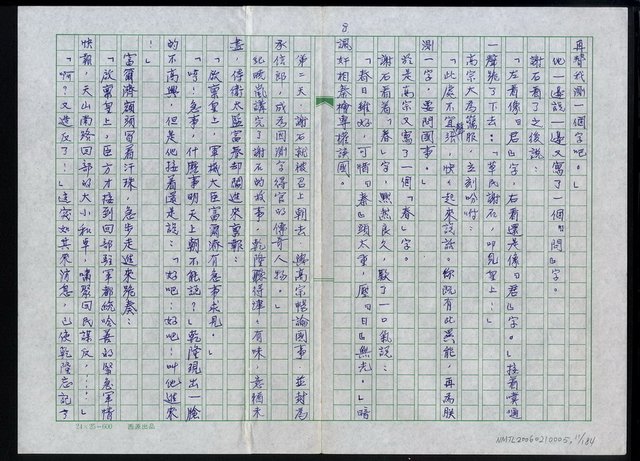 8
再替我測一個字吧。」
他一邊說一邊又寫了一個『問』字。
謝石看了之後說：
「左看像『君』字，右看還是像『君』字。」接著噗通
一聲跪了下去：「草民謝石，叩見皇上…」
高宗大為驚服，立刻吩咐：
「此處不宜張揚，快快起來說話。你既有此異能，再為朕
測一字，要問國事。」
於是高宗又寫了一個「春」字。
謝石看著「春」字，默然良久，歎了一口氣說：
「春日雖好，可惜『春』頭太重，壓『日』無光。」暗
諷奸相秦檜專權誤國。
第二天，謝石就被召上朝去，與高宗暢論國事，並封為
承信郎，成為因測字得官的傳奇人物。」
紀曉嵐講完了謝石的故事，乾隆聽得津津有味，意猶未
盡，侍衛太監富泰却闖進來稟報：
「啟稟皇上，軍機大臣富爾濟有急事求見。」
「哼！急事，什麼事明天上朝不能說？」乾隆現出一臉
的不高興，但是他接著還是說：「好吧！好吧！叫他進來
！」
富爾濟額頭冒著汗珠，急步走進來跪奏：
「啟稟皇上，臣方才接到回部駐軍都統哈善的緊急軍情
快報，天山南路回部的大小和卓，嘯聚回民謀反，……」
「啊？又造反了！」這突如其來消息，已使乾隆忘記了
24×25＝600
NMTL20060210005, 11/184